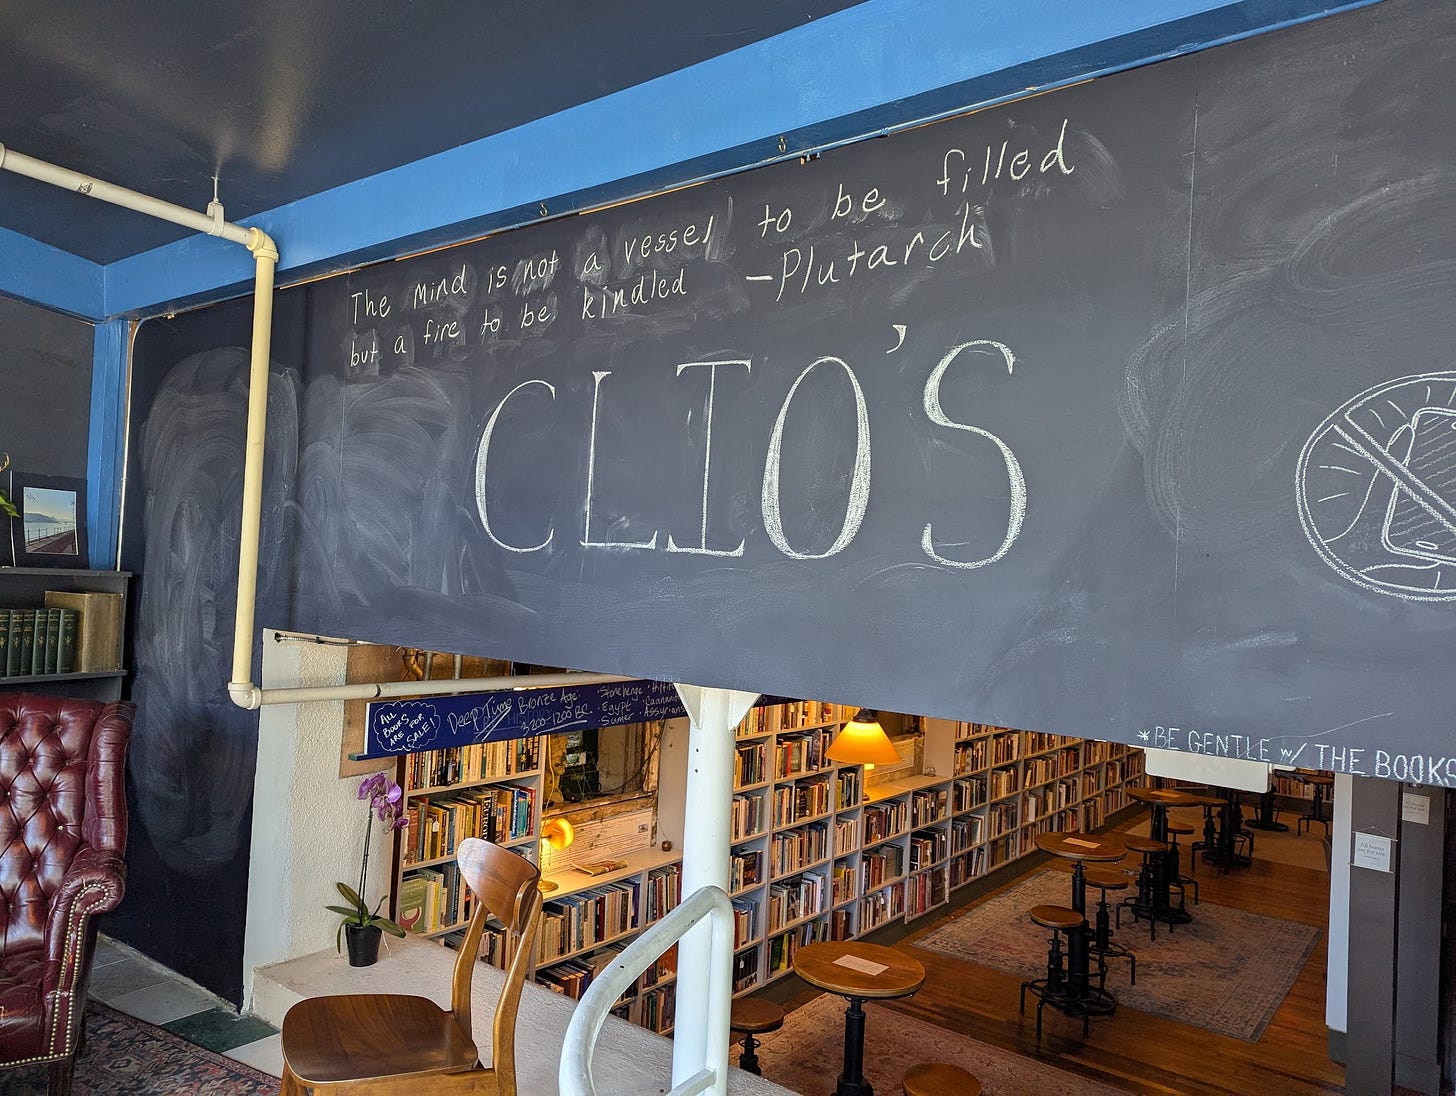 The mind is not a vessel to be filled
but a fire to be kindled —Plutarch
CLIO'S
ALL
BOOKS
ARE FOR
SALE!
Deep Time Bronze Age:
3200-1200 BC.
• Stonehenge
• Egypt
• Sumer
*BE GENTLE w/ THE BOOKS
All books
are for sale